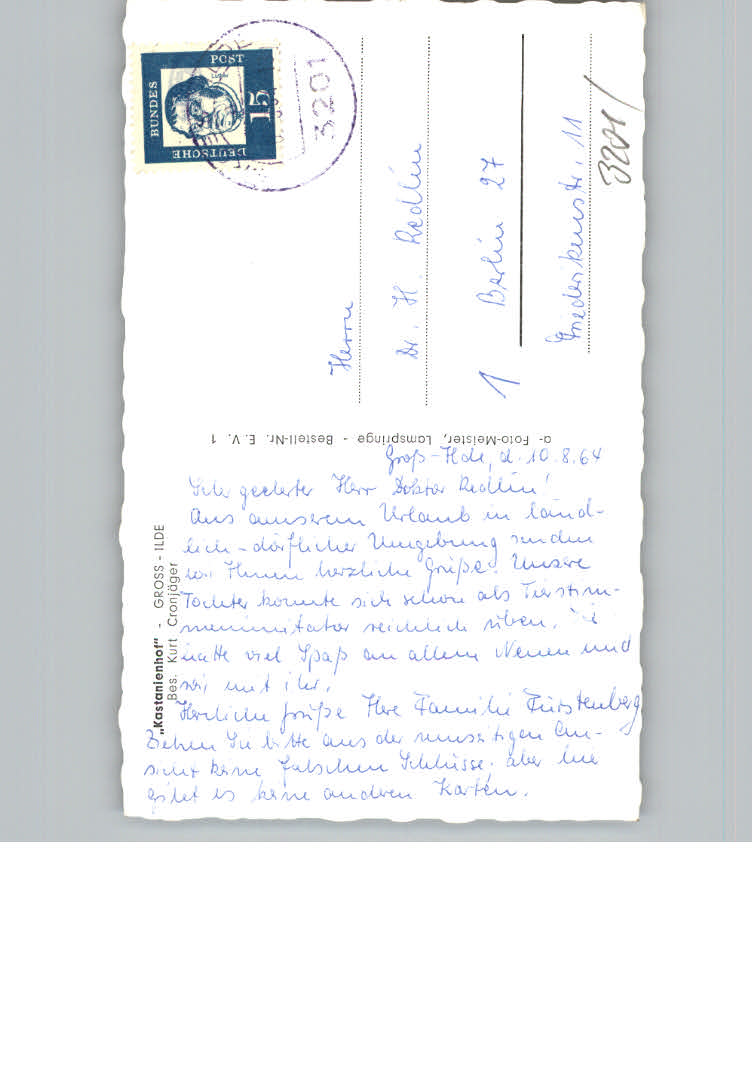 Groß-Ilde, d. 10.8.64
Sehr geehrter Herr Doktor Redlin!
Aus unserem Urlaub in länd-
lich-dörflicher Umgebung senden
wir Ihnen herzliche Grüße. Unsere
Tochter konnte sich schon als Tierstim-
menimitator reichlich üben. Sie
hatte viel Spaß an allem Neuen und
wir mit ihr.
Herzliche Grüße Ihre Familie Fürstenberg
Ziehen Sie bitte aus der umseitigen An-
sicht keine falschen Schlüsse. aber hier
gibt es keine anderen Karten.
„Kastanienhof" - GROSS - ILDE
Bes. Kurt Cronjäger
a- Foto-Meister, Lamspringe - Bestell-Nr. E. V. 1
DEUTSCHE
BUNDES
POST
15
LUTHER
3201
Herrn
Dr. H. Redlin
1 Berlin 27
Friederikenstr. 11
3201/